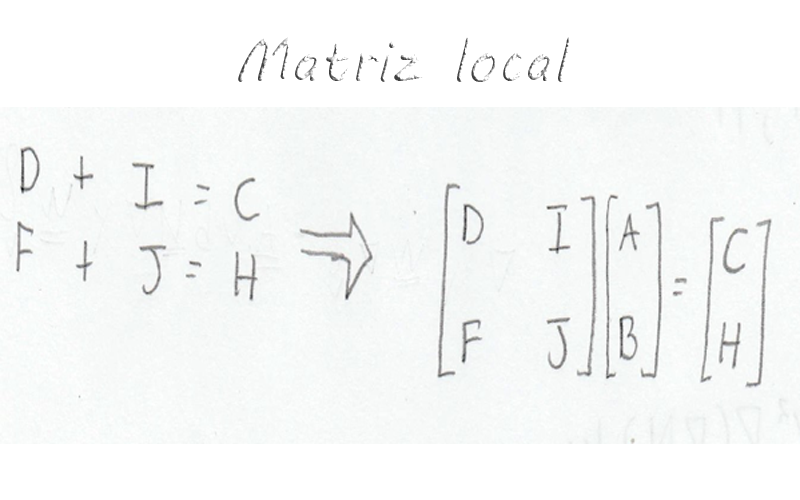 Matriz local
D + I = C
F + J = H
⇒
[D I] [A] = [C]
[F J] [B] [H]